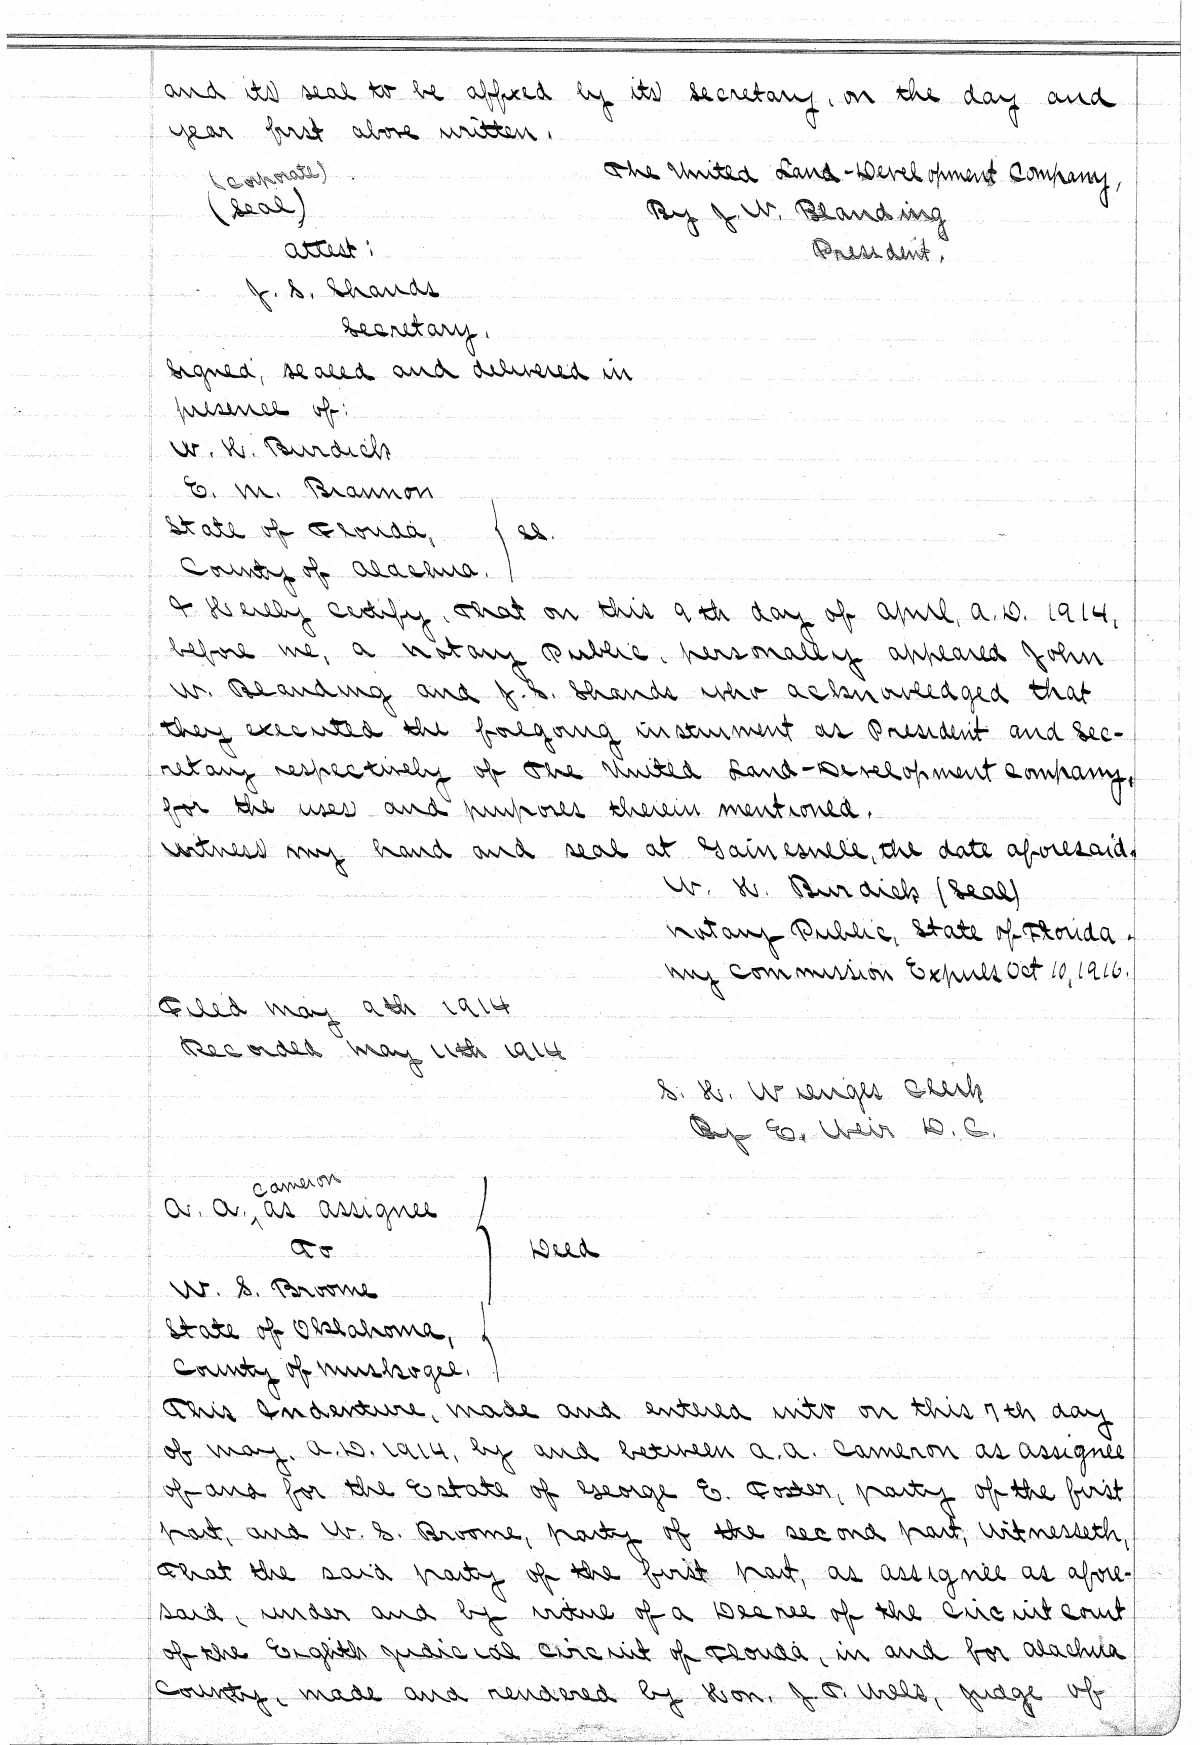 and its seal to be affixed by its secretary, on the day and
year first above written.
(Corporate) The United Land-Development Company,
(Seal) By J. W. Blanding
attest: President.
J. S. Shands
Secretary.
Signed, sealed and delivered in
presence of:
W. H. Burdick
E. M. Brannon
State of Florida, } ss.
County of Alachua.
I Hereby Certify, That on this 9th day of April, A.D. 1914,
before me, a Notary Public, personally appeared John
W. Blanding and J. S. Shands who acknowledged that
they executed the foregoing instrument as President and Sec-
retary respectively of The United Land-Development Company,
for the uses and purposes therein mentioned.
Witness my hand and seal at Gainesville, the date aforesaid.
W. H. Burdick (Seal)
Notary Public, State of Florida.
My Commission Expires Oct 10, 1916.
Filed May 9th 1914
Recorded May 11th 1914
S. H. Wienges Clerk
By E. Weir D.C.
Cameron
A. A., as assignee
To } Deed
W. S. Broome
State of Oklahoma, }
County of Muskogee.
This Indenture, made and entered into on this 7th day
of May, A.D. 1914, by and between A. A. Cameron as assignee
of and for the Estate of George E. Foster, party of the first
part, and W. S. Broome, party of the second part, Witnesseth,
That the said party of the first part, as assignee as afore-
said, under and by virtue of a Decree of the Circuit Court
of the Eighth Judicial Circuit of Florida, in and for Alachua
County, made and rendered by Hon. J. T. Wills, Judge of